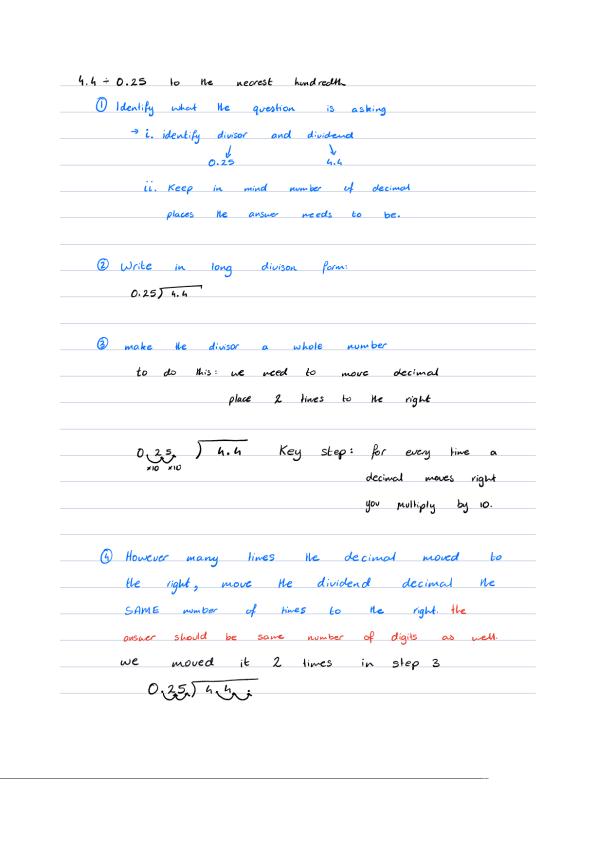 4.4 ÷ 0.25 to the nearest hundredth
① Identify what the question is asking
→ i. identify divisor and dividend
0.25 4.4
ii. Keep in mind number of decimal
places the answer needs to be.
② Write in long divison form:
0.25)4.4
③ make the divisor a whole number
to do this: we need to move decimal
place 2 times to the right
0.25.)4.4 Key step: for every time a
x10 x10 decimal moves right
you multiply by 10.
④ However many times the decimal moved to
the right, move the dividend decimal the
SAME number of times to the right. the
answer should be same number of digits as well.
we moved it 2 times in step 3
0.25.)4.4 .